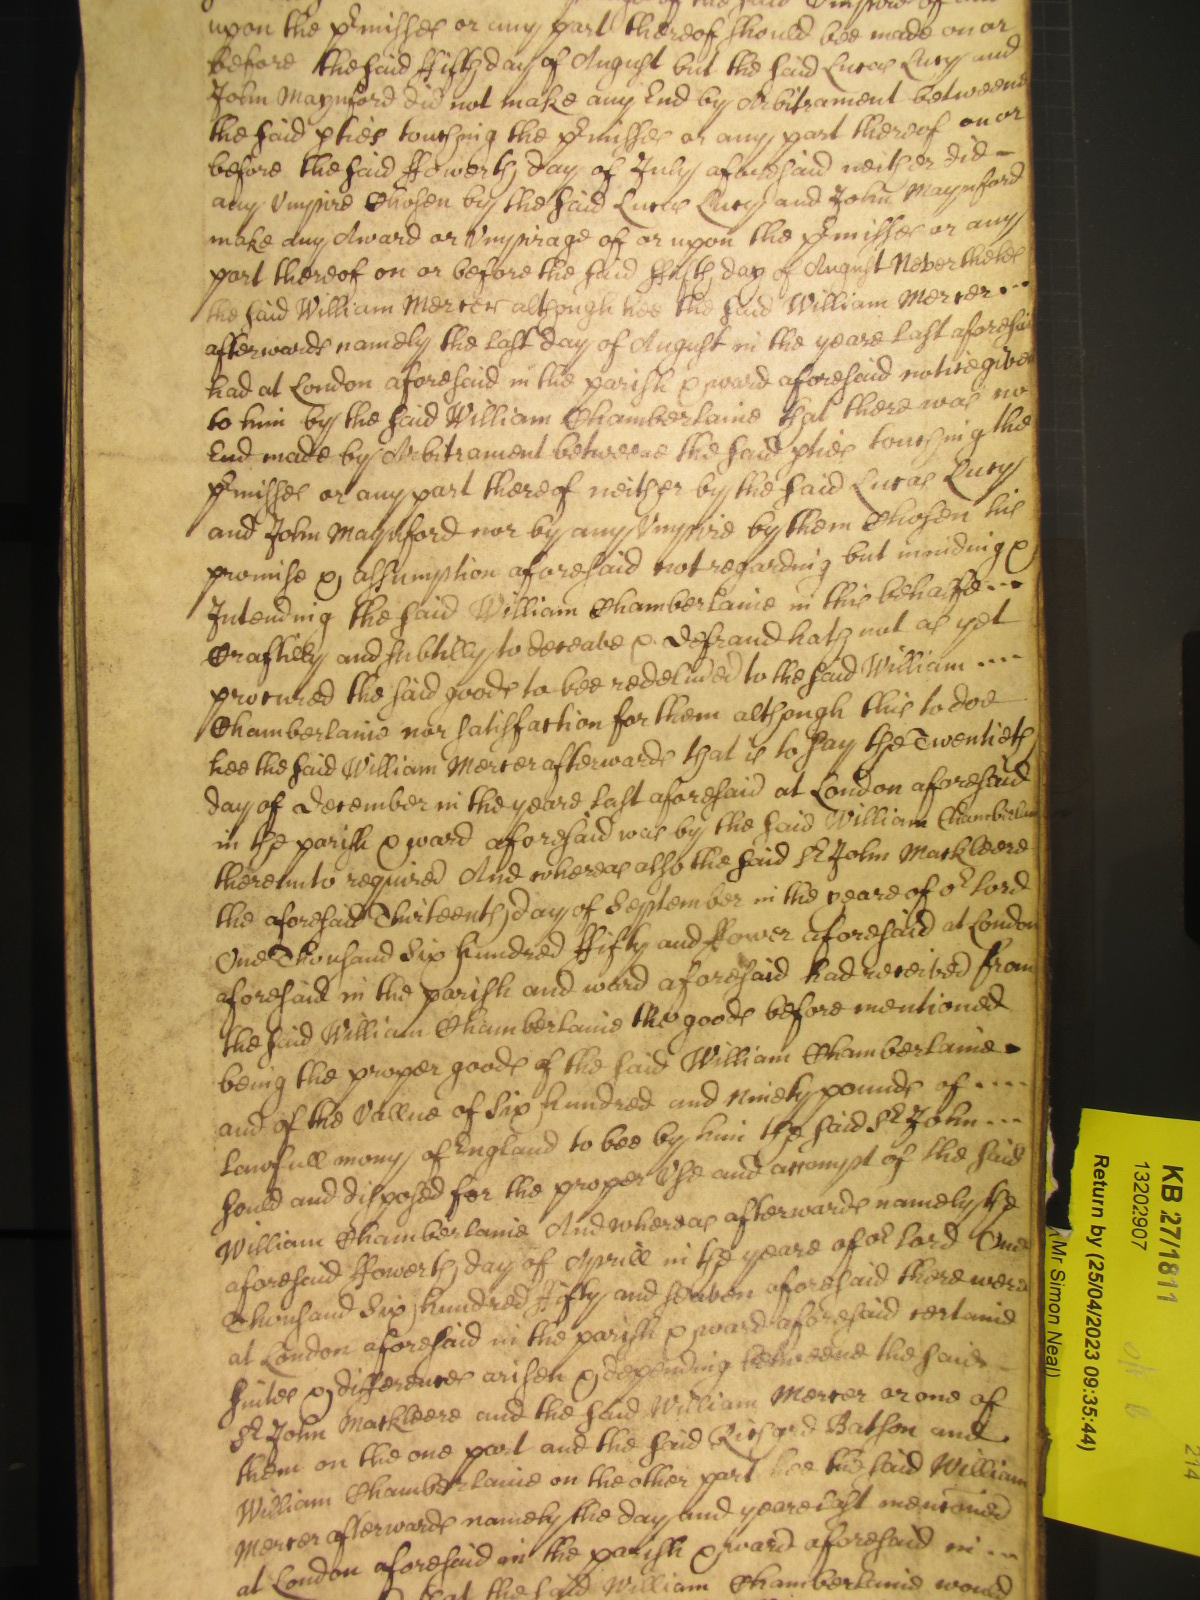 of the said Umpire of and
upon the p^rmisses or any part thereof should bee made on or
before the said ffifth day of August but the said Lucas Lucy and
John Maynford did not make any End by Arbitrament betweene
the said pties touching the p^rmisses or any part thereof on or
before the said ffowerth day of July aforesaid neither did
any Umpire Chosen by the said Lucas Lucy and John Maynford
make any Award or Umpirage of or upon the p^rmisses or any
part thereof on or before the said ffifth day of August Neverthelesse
the said William Mercer although hee the said William Mercer
afterwards namely the last day of August in the yeare last aforesaid
had at London aforesaid in the parish & ward aforesaid notice given
to him by the said William Chamberlaine that there was no
End made by Arbitrament betweene the said pties touching the
p^rmisses or any part thereof neither by the said Lucas Lucy
and John Maynford nor by any Umpire by them Chosen his
promise & assumption aforesaid not regarding but minding &
Intending the said William Chamberlaine in this behalfe
Craftily and subtilly to deceave & defraud hath not as yet
procured the said goods to bee redeliv'ed to the said William
Chamberlaine nor satisfaction for them although this to doe
hee the said William Mercer afterwards that is to say the Twentieth
day of December in the yeare last aforesaid at London aforesaid
in the parish & ward aforesaid was by the said William Chamberlaine
thereunto required And whereas also the said S^r John Mackleere
the aforesaid Thirteenth day of September in the yeare of o^r Lord
One Thousand Six hundred ffifty and ffower aforesaid at London
aforesaid in the parish and ward aforesaid had received from
the said William Chamberlaine the goods before mentioned
being the proper goods of the said William Chamberlaine
and of the Vallue of Six hundred and Ninety pounds of
lawfull mony of England to bee by him the said S^r John
sould and disposed for the proper Use and accompt of the said
William Chamberlaine And whereas afterwards namely the
aforesaid ffowerth day of Aprill in the yeare of o^r Lord One
Thousand Six hundred ffifty and seaven aforesaid there were
at London aforesaid in the parish & ward aforesaid certaine
suites & differences arisen & depending betweene the said
S^r John Mackleere and the said William Mercer or one of
them on the one part and the said Richard Batson and
William Chamberlaine on the other part hee the said William
Mercer afterwards namely the day and yeare last mentioned
at London aforesaid in the parish & ward aforesaid in
that the said William Chamberlaine would
KB 27/1811
13202907
Return by (25/04/2023 09:35:44)
(Mr Simon Neal)
214